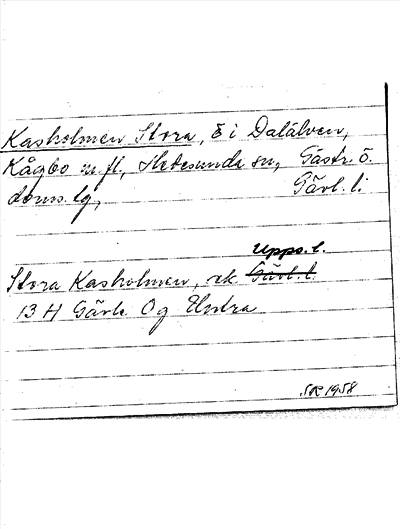 Kasholmen Stora, ö i Dalälven,
Kågbo m.fl., Hedesunda sn, Gästr. ö.
doms.lg, Gävl. l:
Upps. l.
Stora Kasholmen, ek. Gävl. l.
13 H Gävle Og Untra
SR 1958